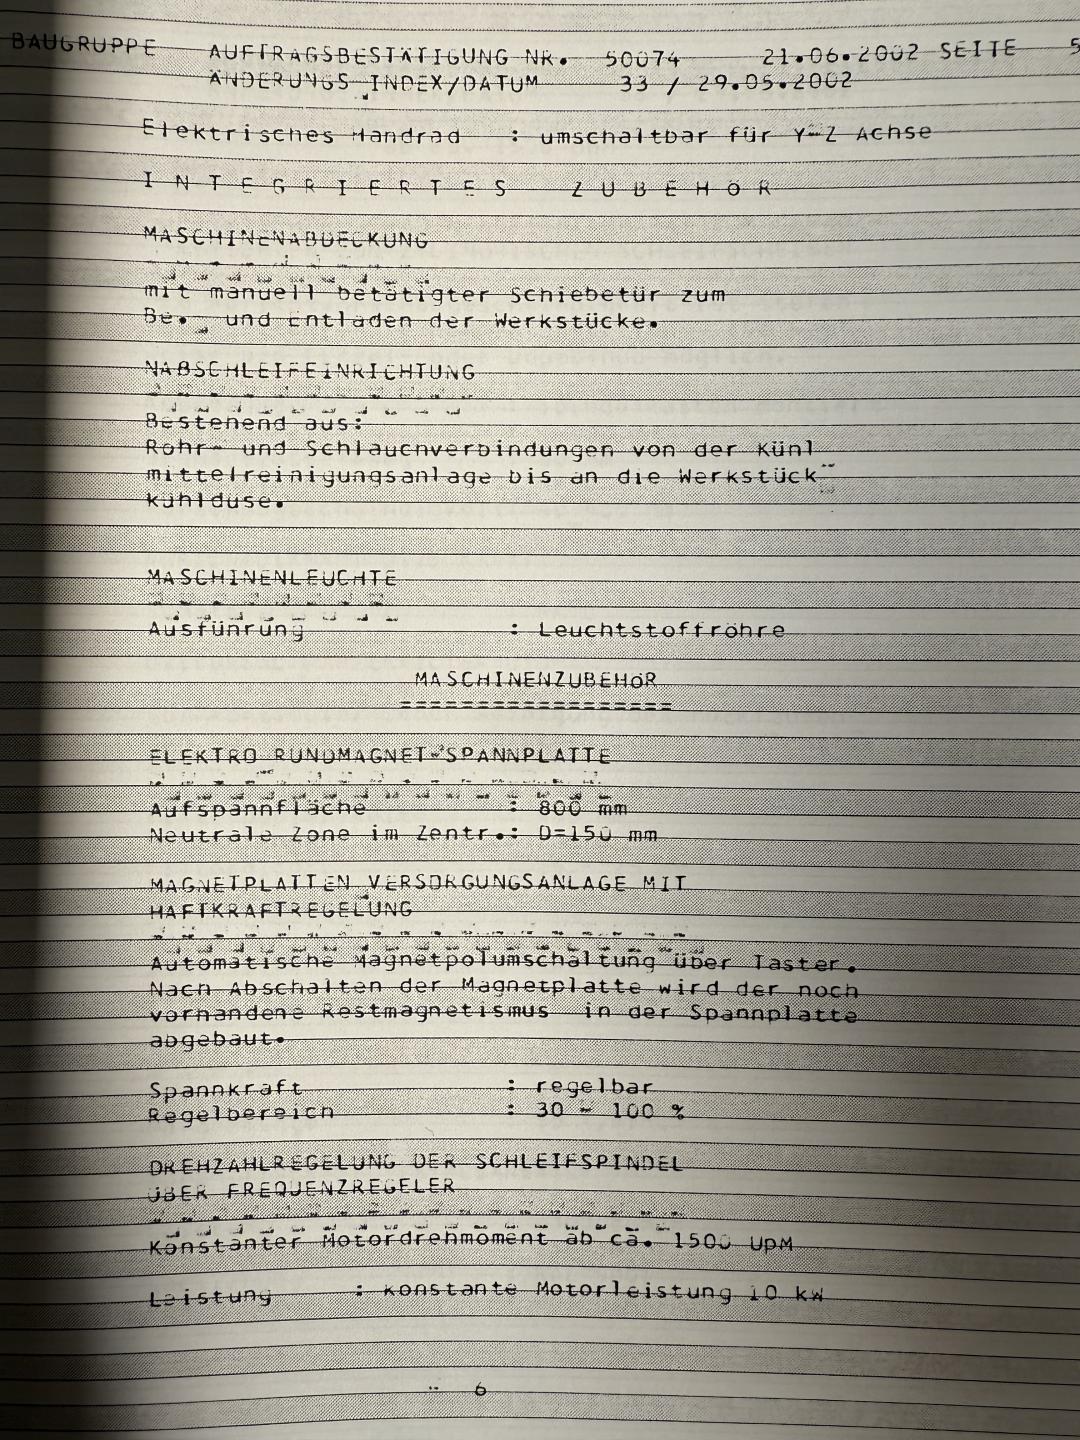 BAUGRUPPE AUFTRAGSBESTÄTIGUNG NR. 50074 21.06.2002 SEITE 5
ÄNDERUNGS INDEX/DATUM 33 / 29.05.2002
Elektrisches Handrad : umschaltbar für Y-Z Achse
I N T E G R I E R T E S Z U B E H Ö R
MASCHINENABDECKUNG
mit manuell betätigter Schiebetür zum
Be. und Entladen der Werkstücke.
NAßSCHLEIFEINRICHTUNG
Bestehend aus:
Rohr- und Schlauchverbindungen von der Kühl
mittelreinigungsanlage bis an die Werkstück-
kühlduse.
MASCHINENLEUCHTE
Ausführung : Leuchtstoffröhre
MASCHINENZUBEHÖR
==================
ELEKTRO RUNDMAGNET-SPANNPLATTE
Aufspannfläche : 800 mm
Neutrale Zone im Zentr.: D=150 mm
MAGNETPLATTEN VERSORGUNGSANLAGE MIT
HAFTKRAFTREGELUNG
Automatische Magnetpolumschaltung über Taster.
Nach Abschalten der Magnetplatte wird der noch
vorhandene Restmagnetismus in der Spannplatte
abgebaut.
Spannkraft : regelbar
Regelbereich : 30 - 100 %
DREHZAHLREGELUNG DER SCHLEIFSPINDEL
ÜBER FREQUENZREGELER
Konstanter Motordrehmoment ab ca. 1500 UpM
Leistung : konstante Motorleistung 10 kW
6